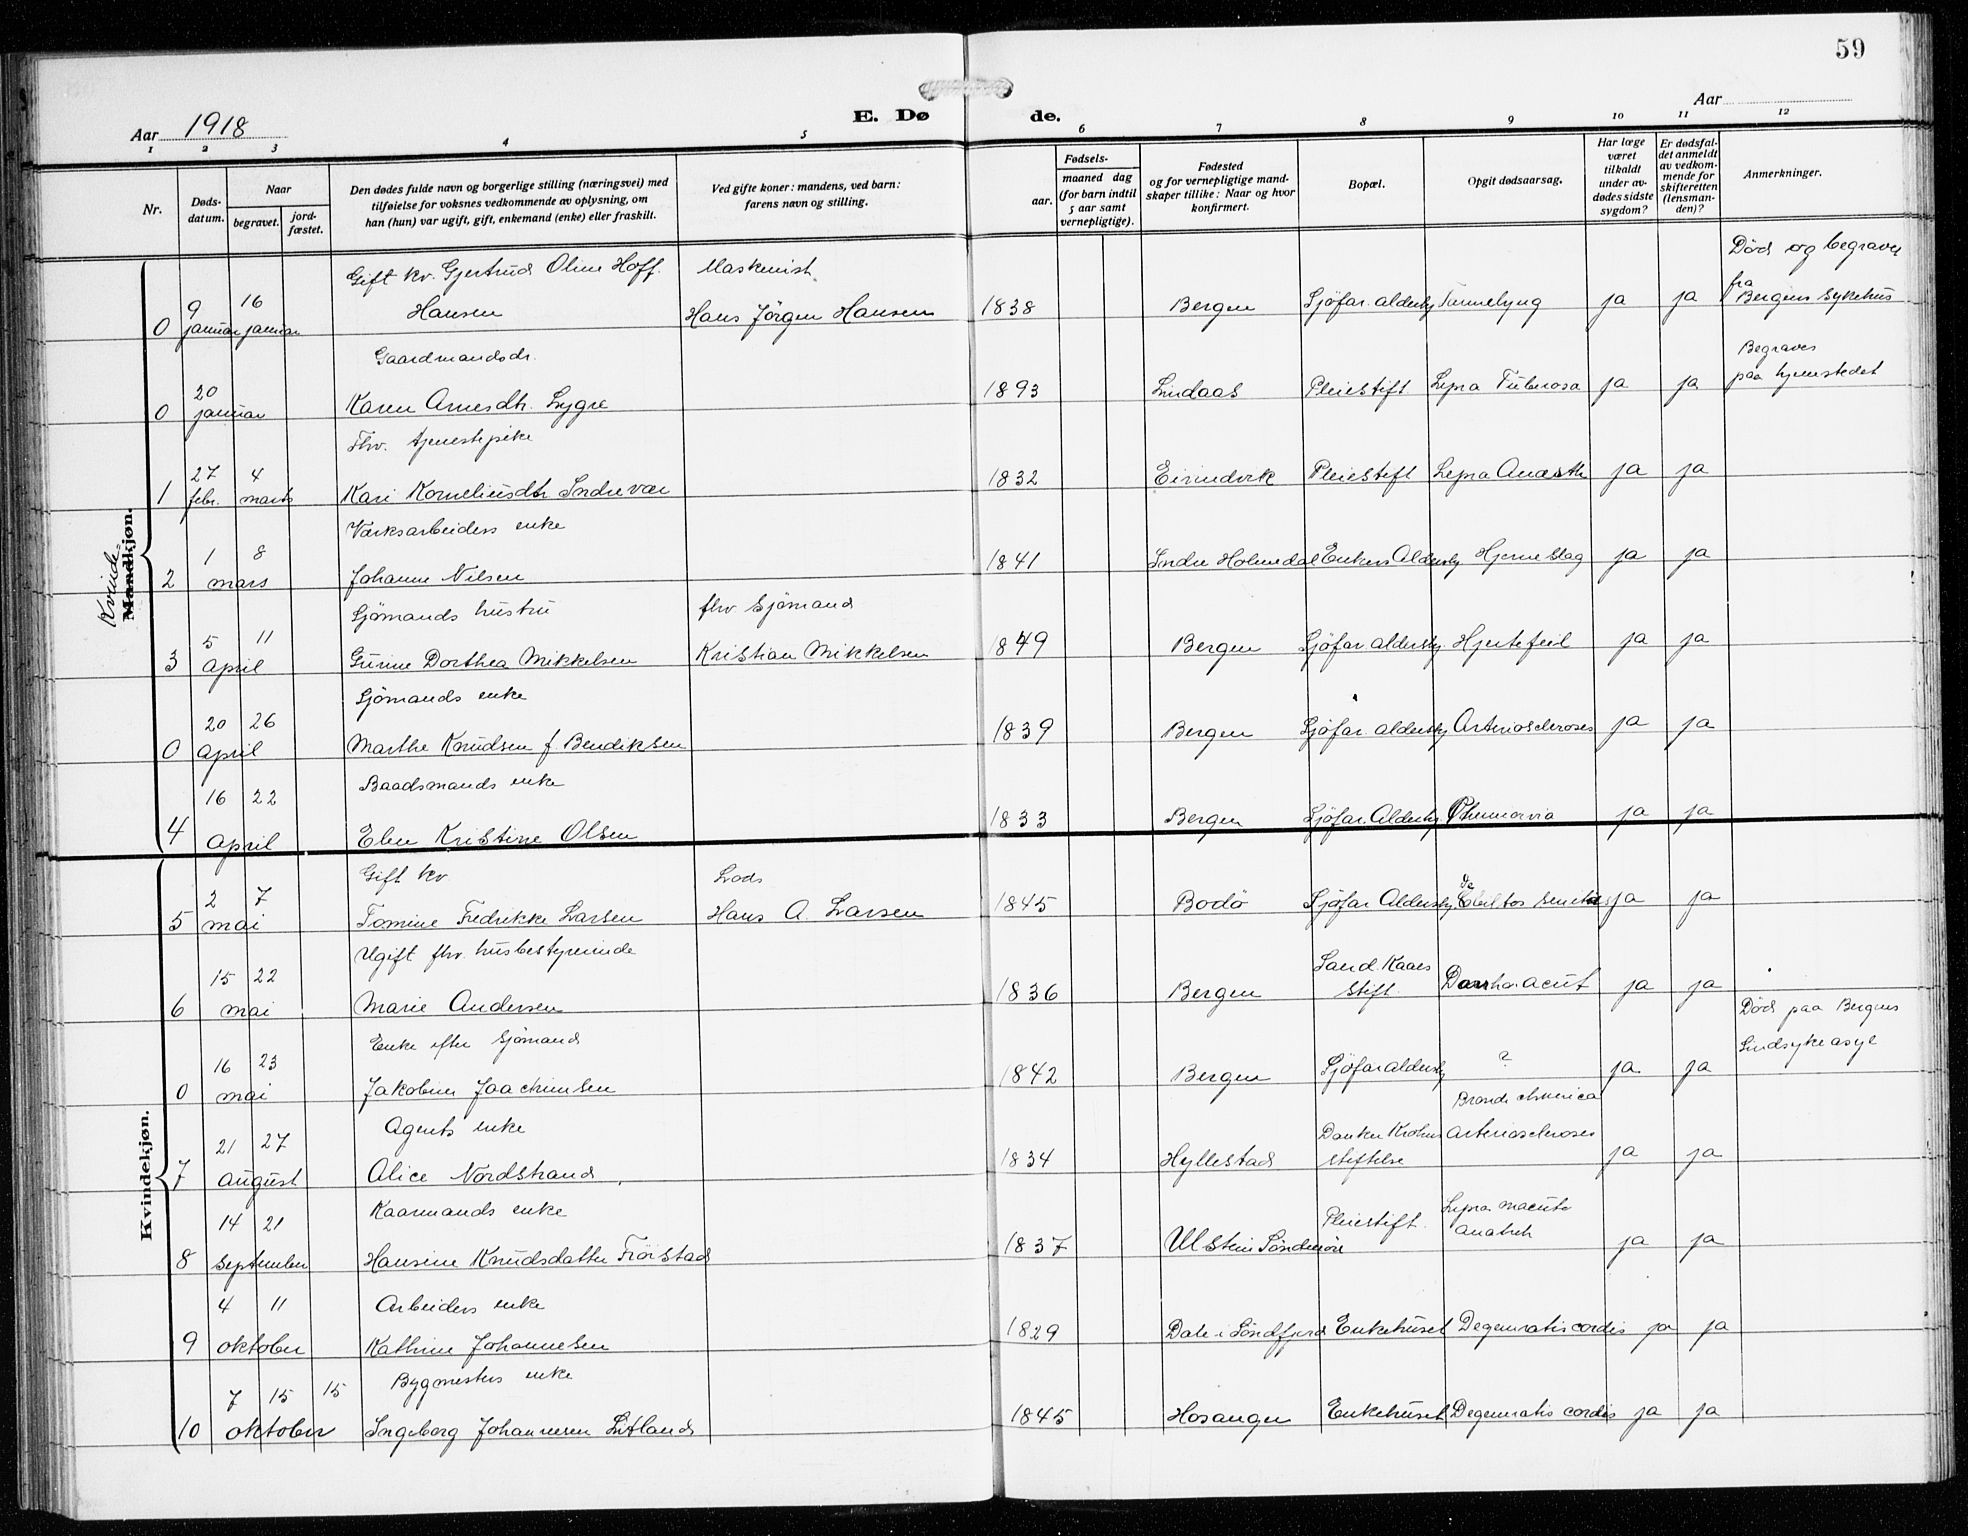 59
Aar 1918
E. Dø
de.
Aar
1 2 3 4 5 6 7 8 9 10 11 12
Nr.
Døds-
datum.
Naar
begravet.
jord-
fæstet.
Den dødes fulde navn og borgerlige stilling (næringsvei) med
tilføielse for voksnes vedkommende av oplysning, om
han (hun) var ugift, gift, enkemand (enke) eller fraskilt.
Ved gifte koner: mandens, ved barn:
farens navn og stilling.
Fødsels-
aar.
maaned dag
(for barn indtil
5 aar samt
vernepligtige).
Fødested
og for vernepligtige mand-
skaper tillike: Naar og hvor
konfirmert.
Bopæl.
Opgit dødsaarsag.
Har læge
været
tilkaldt
under av-
dødes sidste
sygdom?
Er dødsfal-
det anmeldt
av vedkom-
mende for
skifteretten
(lensman-
den)?
Anmerkninger.
Kvinde=
Mandkjøn.
Gift kv. Gjertrud Oline Hoff. Maskenist Død og begravet
0 9 januar 16 januar Hansen Hans Jörgen Hansen 1838 Bergen Sjöfar. aldershj ja ja fra Bergens Sykehus
Gaardmandsdr. Begraves
0 20 januar Karen Arnesdtr. Lygre 1893 Lindaas Pleiestift Lepra Tuberosa ja ja paa hjemstedet
Fhv. tjenestepike
1 27 febr. 4 marts Kari Korneliusdtr Indrevær 1832 Eivindvik Pleiestift Lepra Anæsth ja ja
Værksarbeiders enke
2 1 8 mars Johanne Nilsen 1841 Indre Holmedal Enkers Aldershj Hjerneslag ja ja
Sjömands hustru fhv Sjömand
3 5 11 April Gurine Dorthea Mikkelsen Kristian Mikkelsen 1849 Bergen Sjöfar aldershj. Hjertefeil ja ja
Sjömands enke
0 20 26 April Marthe Knudsen f. Bendiksen 1839 Bergen Sjöfar aldershj Arterioscleroses ja ja
Baadsmands enke
4 16 22 April Elen Kristine Olsen 1833 Bergen Sjöfar. Aldershj ja ja
Kvindekjøn.
Gift kv. Lods
5 2 7 mai Tomine Fedrikke Larsen Hans A. Larsen 1845 Bodö Sjöfar Aldershj ja ja
Ugift fhv. husbestyrerinde
6 15 22 mai Marie Andersen 1836 Bergen Sand. Kaaes Stift. acut ja ja
Enke efter Sjömand Död paa Bergens
0 16 23 mai Jakobine Joachimsen 1842 Bergen Sjöfaraldershj ? ja ja Sindsykeasyl
Agents enke
7 21 27 august Alice Nordstrand 1834 Hyllestad Danker Krohns stiftelse Arterioscleroses ja ja
Kaarmands enke
8 14 21 september Hansine Knudsdatter 1837 Ulstein Söndmöre Pleiestift. Lepra ja ja
Arbeiders enke
9 4 11 oktober Kathrine Johannesen 1829 Dale i Söndfjord Enkehuset Degeneratis cordis ja ja
Bygmesters enke
10 7 15 15 oktober Ingeborg Johannesen 1845 Hosanger Enkehuset Degeneratis cordis ja ja